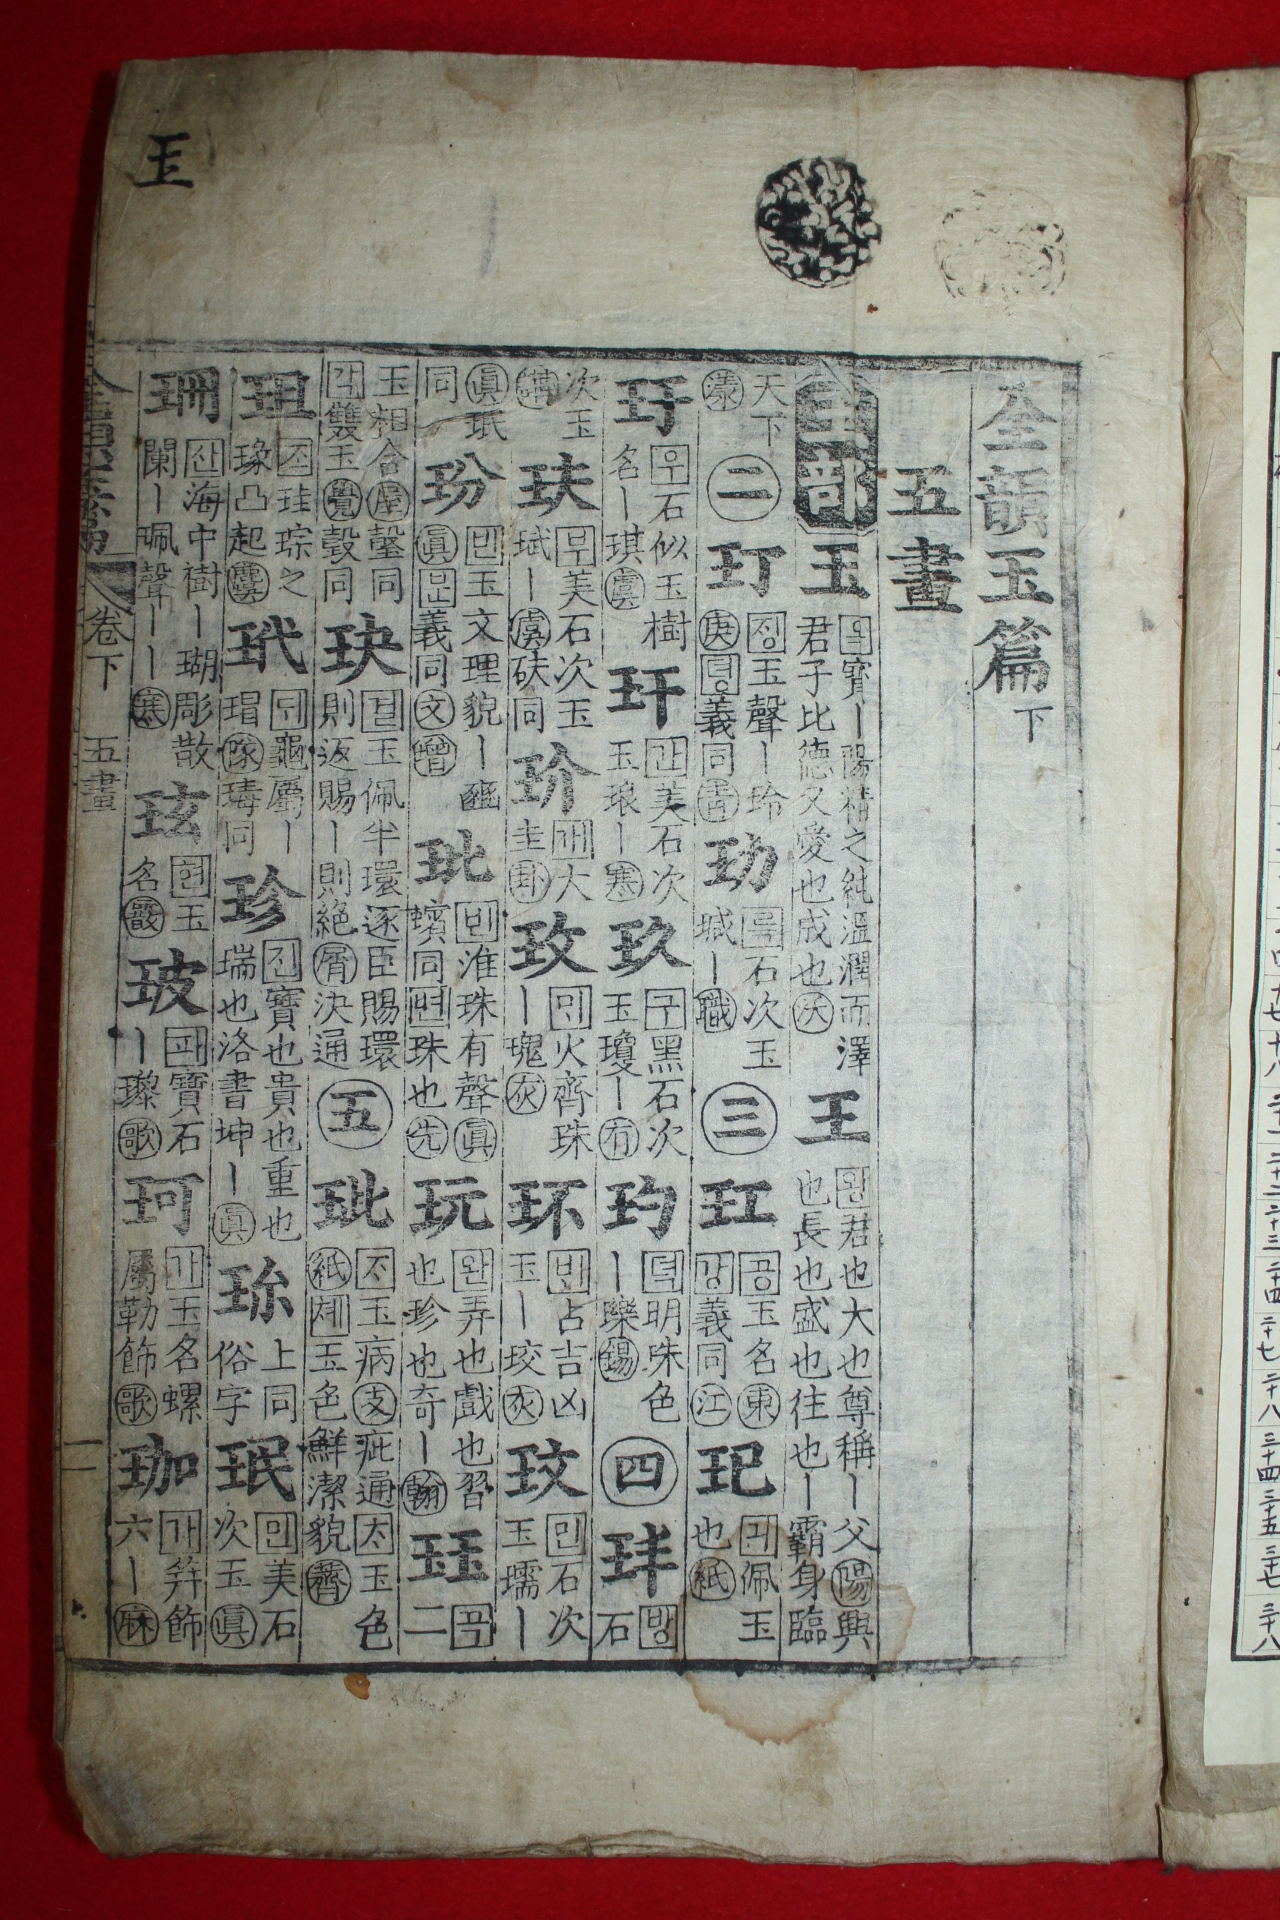 玉
全韻玉篇 下
五畫
玉部 玉 옥寶ㅣ陽精之純溫潤而澤君子比德又愛也成也沃 王 왕君也大也尊稱ㅣ父陽興也長也盛也往也ㅣ霸身臨
天下漾 二 玎 정玉聲ㅣ玲庚뎡義同靑 玏 륵石次玉瑊ㅣ職 三 玒 공玉名東강義同江 玘 긔佩玉也紙
玗 우石似玉樹名ㅣ琪虞 玕 간美石次玉琅ㅣ寒 玖 구黑石次玉瓊ㅣ有 玓 뎍明珠色ㅣ瓅錫 四 玤 방石
次玉講 玞 부美石次玉珷ㅣ虞砆同 玠 개大圭卦 玫 믜火齊珠ㅣ瑰灰 环 븨占吉凶玉ㅣ珓灰 玟 민石次玉瓀ㅣ
眞珉同 玢 빈玉文理貌ㅣ豳眞문義同文 玭 빈淮珠有聲眞蠙同변珠也先 玩 완弄也戲也習也珍也奇ㅣ翰 珏 곡二
玉相合屋瑴同각雙玉覺瑴同 玦 결玉佩半環逐臣賜環則返賜ㅣ則絶屑決通 五 玼 ᄌᆞ玉病支疵通ᄎᆞ玉色紙쳬玉色鮮潔貌薺
珇 조珪琮之瑑凸起麌 玳 ᄃᆡ龜屬ㅣ瑁隊瑇同 珍 진寶也貴也重也瑞也洛書坤ㅣ眞 珎 上同俗字 珉 민美石次玉眞
珊 산海中樹ㅣ瑚彫散闌ㅣ珮聲ㅣㅣ寒 玹 현玉名霰 玻 파寶石ㅣ瓈歌 珂 가玉名螺屬勒飾歌 珈 가笄飾六ㅣ麻
卷下 五畫 一